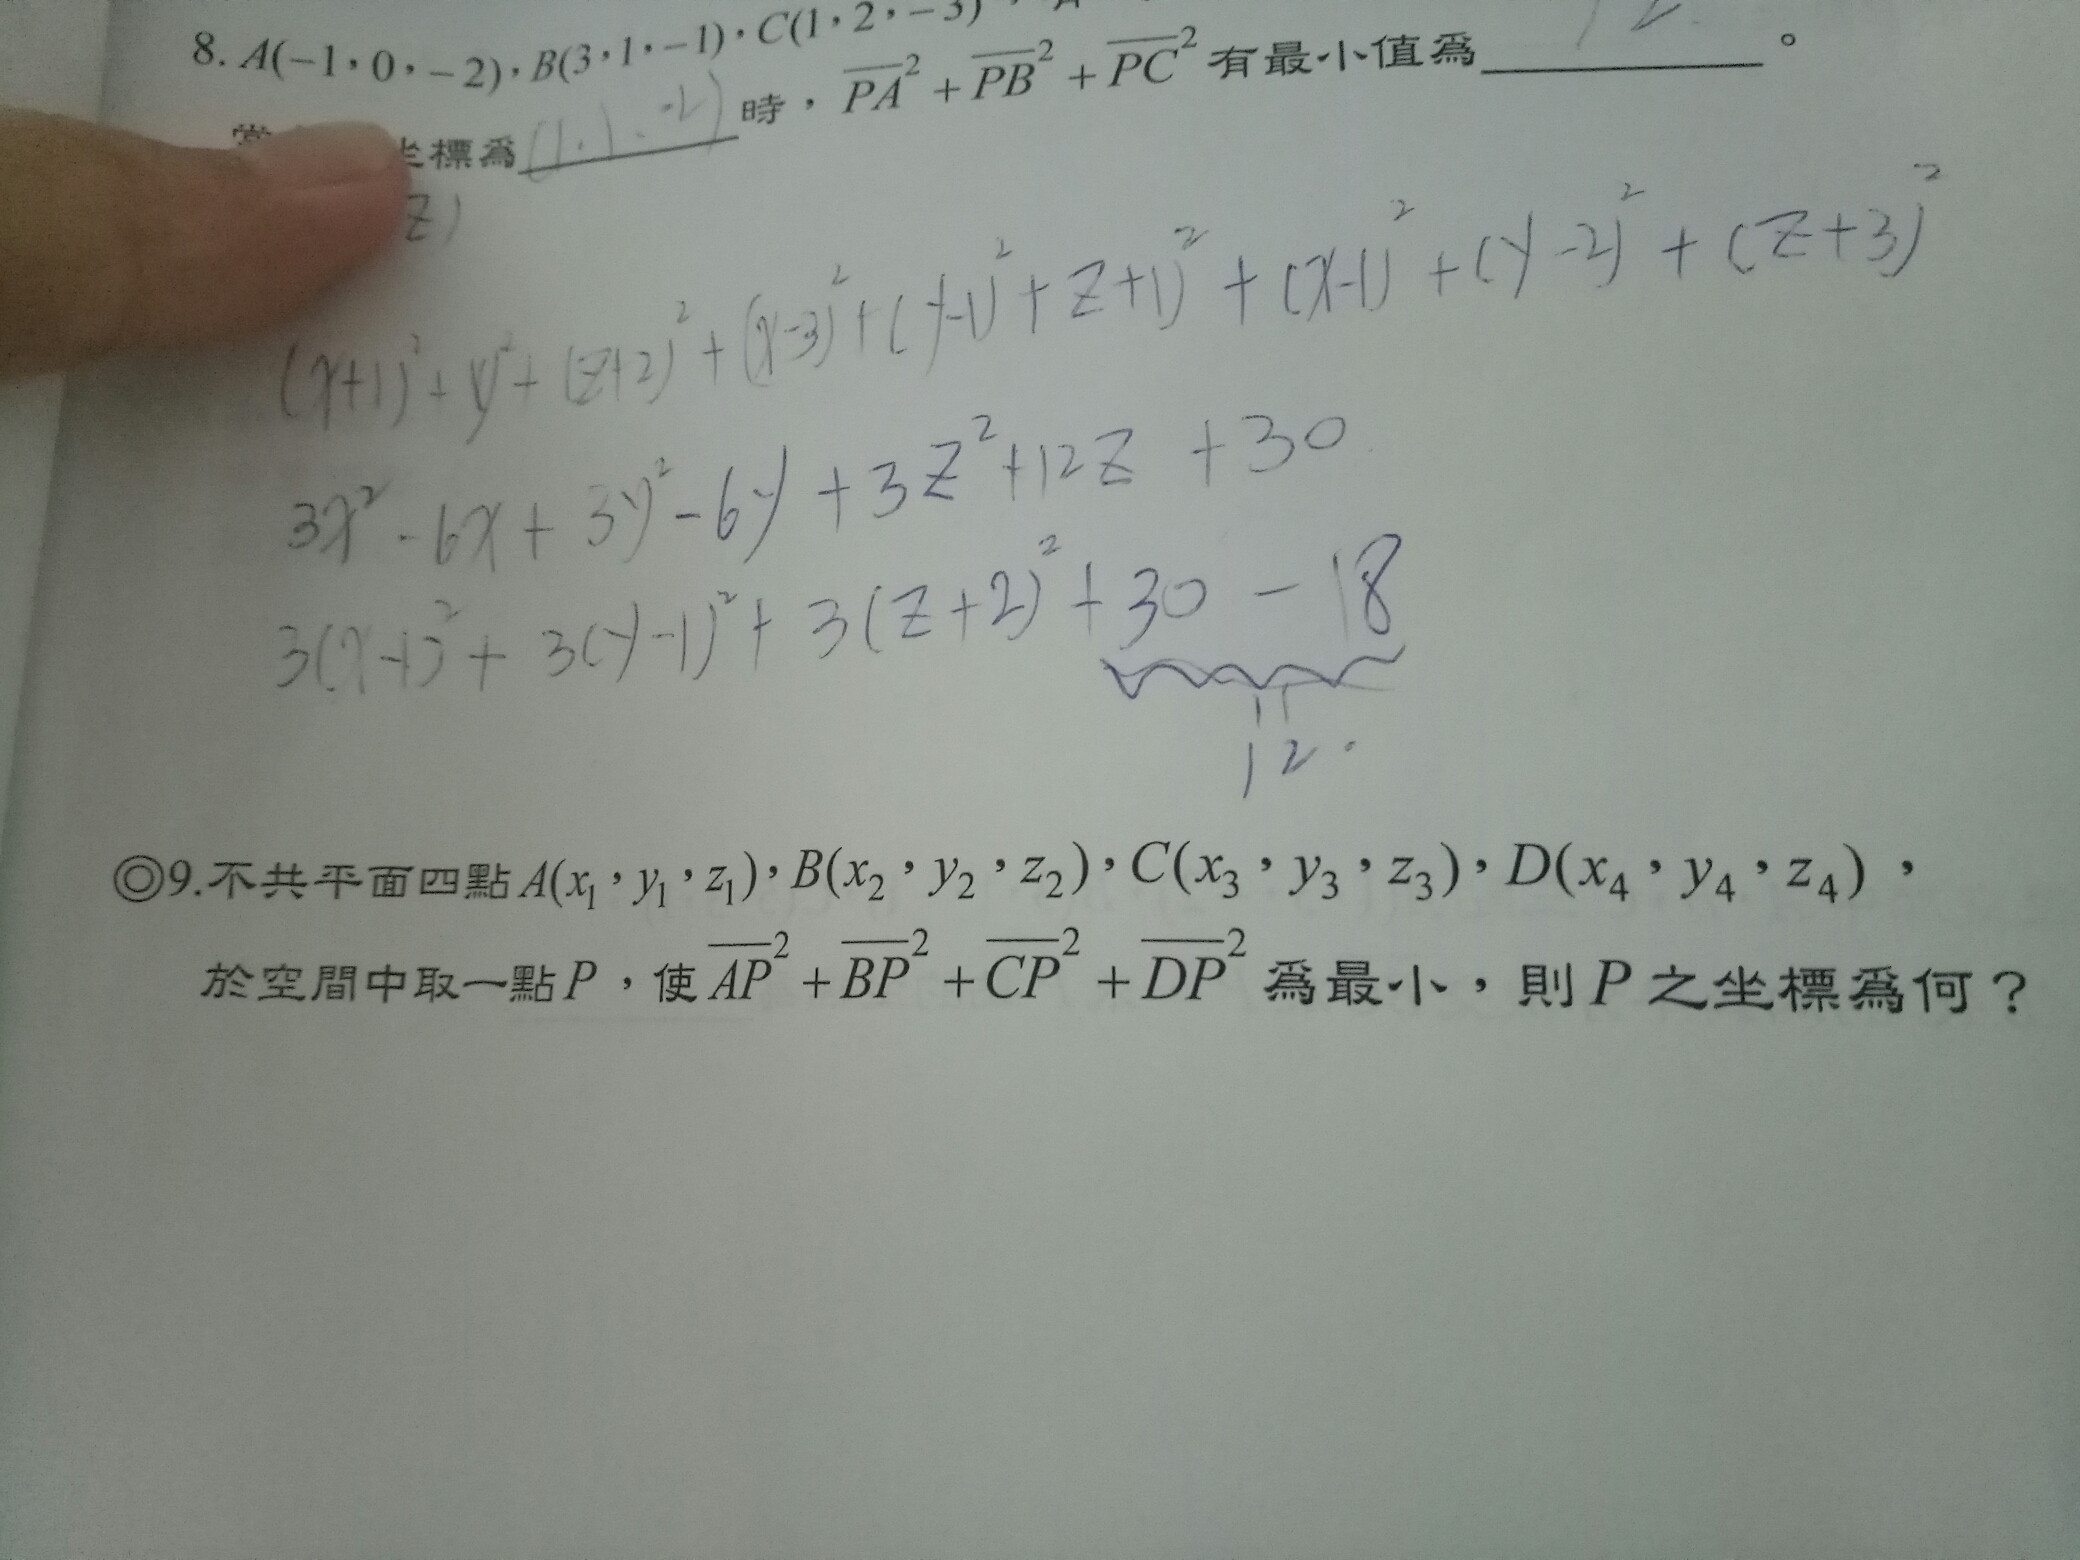 8. A(−1，0，−2)，B(3，1，−1)，C(1，2，−3)，
坐標為(1,1,-2)時，PA² + PB² + PC² 有最小值為12。
z)
(x+1)²+y²+(z+2)²+(x-3)²+(y-1)²+z+1)²+(x-1)²+(y-2)²+(z+3)²
3x²-6x+3y²-6y+3z²+12z+30
3(x-1)²+3(y-1)²+3(z+2)²+30-18
12.
◎9.不共平面四點A(x₁，y₁，z₁)，B(x₂，y₂，z₂)，C(x₃，y₃，z₃)，D(x₄，y₄，z₄)，
於空間中取一點P，使AP² + BP² + CP² + DP² 為最小，則P之坐標為何？